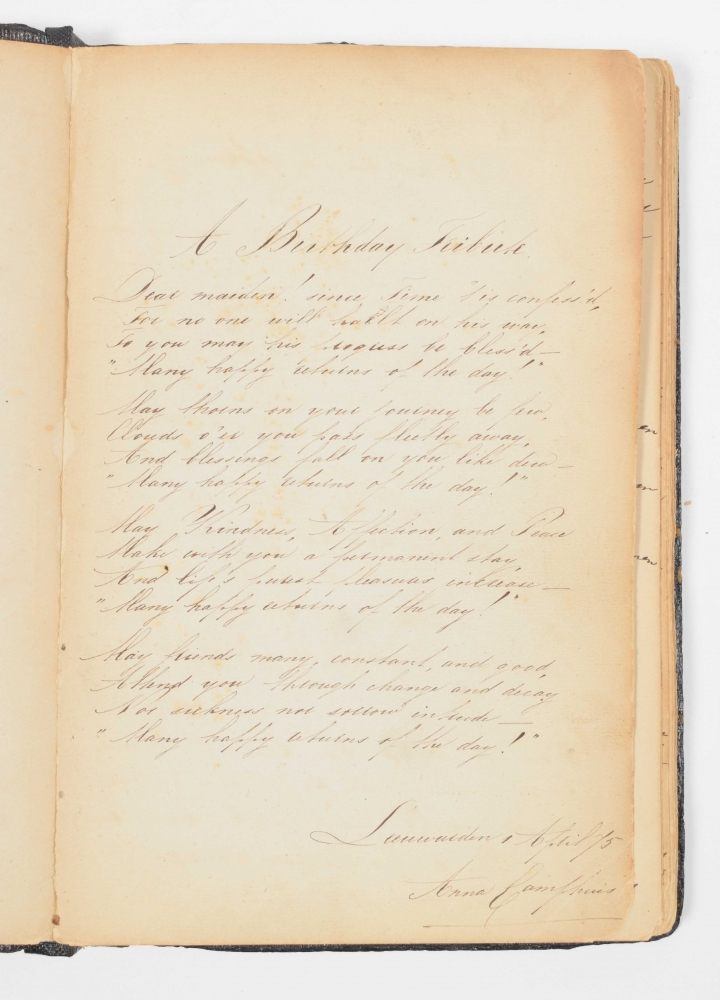 A Birthday Tribute.
Dear maiden! since Time 'tis confess'd,
For no one will halt on his way,
To you may his progress be bless'd —
"Many happy returns of the day!"
May thorns on your journey be few,
Clouds o'er you pass fleetly away,
And blessings fall on you like dew —
"Many happy returns of the day!"
May Kindness, Affection, and Peace
Make with you a permanent stay,
And life's purest pleasures increase —
"Many happy returns of the day!"
May friends many, constant, and good,
Attend you through change and decay
Nor sickness nor sorrow intrude —
"Many happy returns of the day!"
Leeuwarden, April /75
Anna Camphuis
en
en